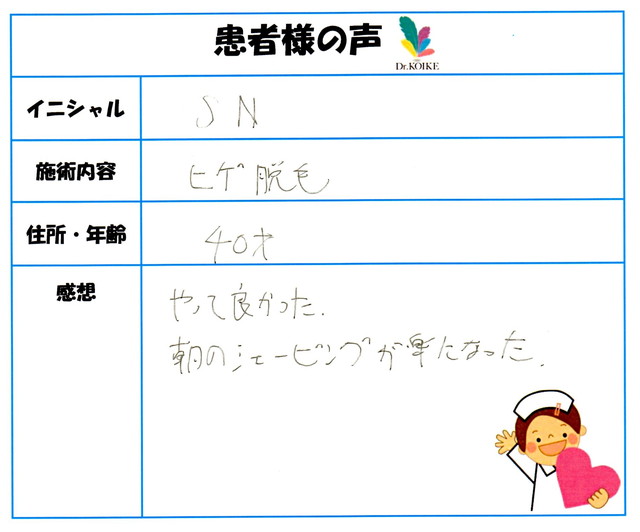 患者様の声
Dr.KOIKE
イニシャル
S N
施術内容
ヒゲ脱毛
住所・年齢
40才
感想
やって良かった.
朝のシェービングが楽になった.